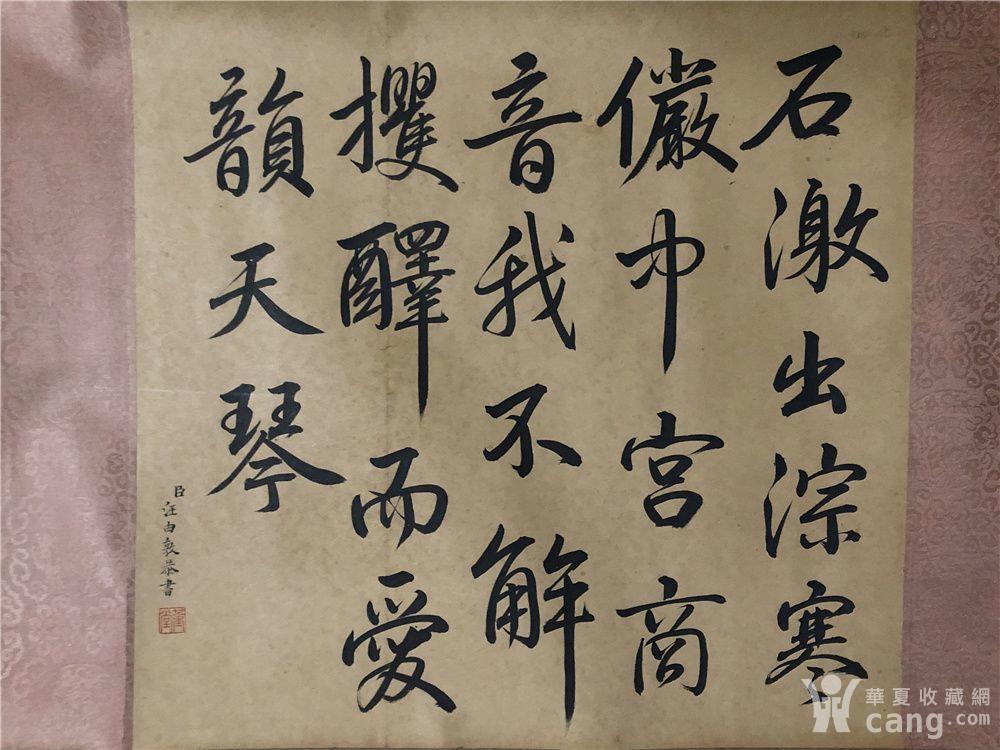 石激出淙寒
儼中宮商
音我不解
攫醳而愛
韻天琴
臣汪由敦恭書
華夏收藏網
cang.com